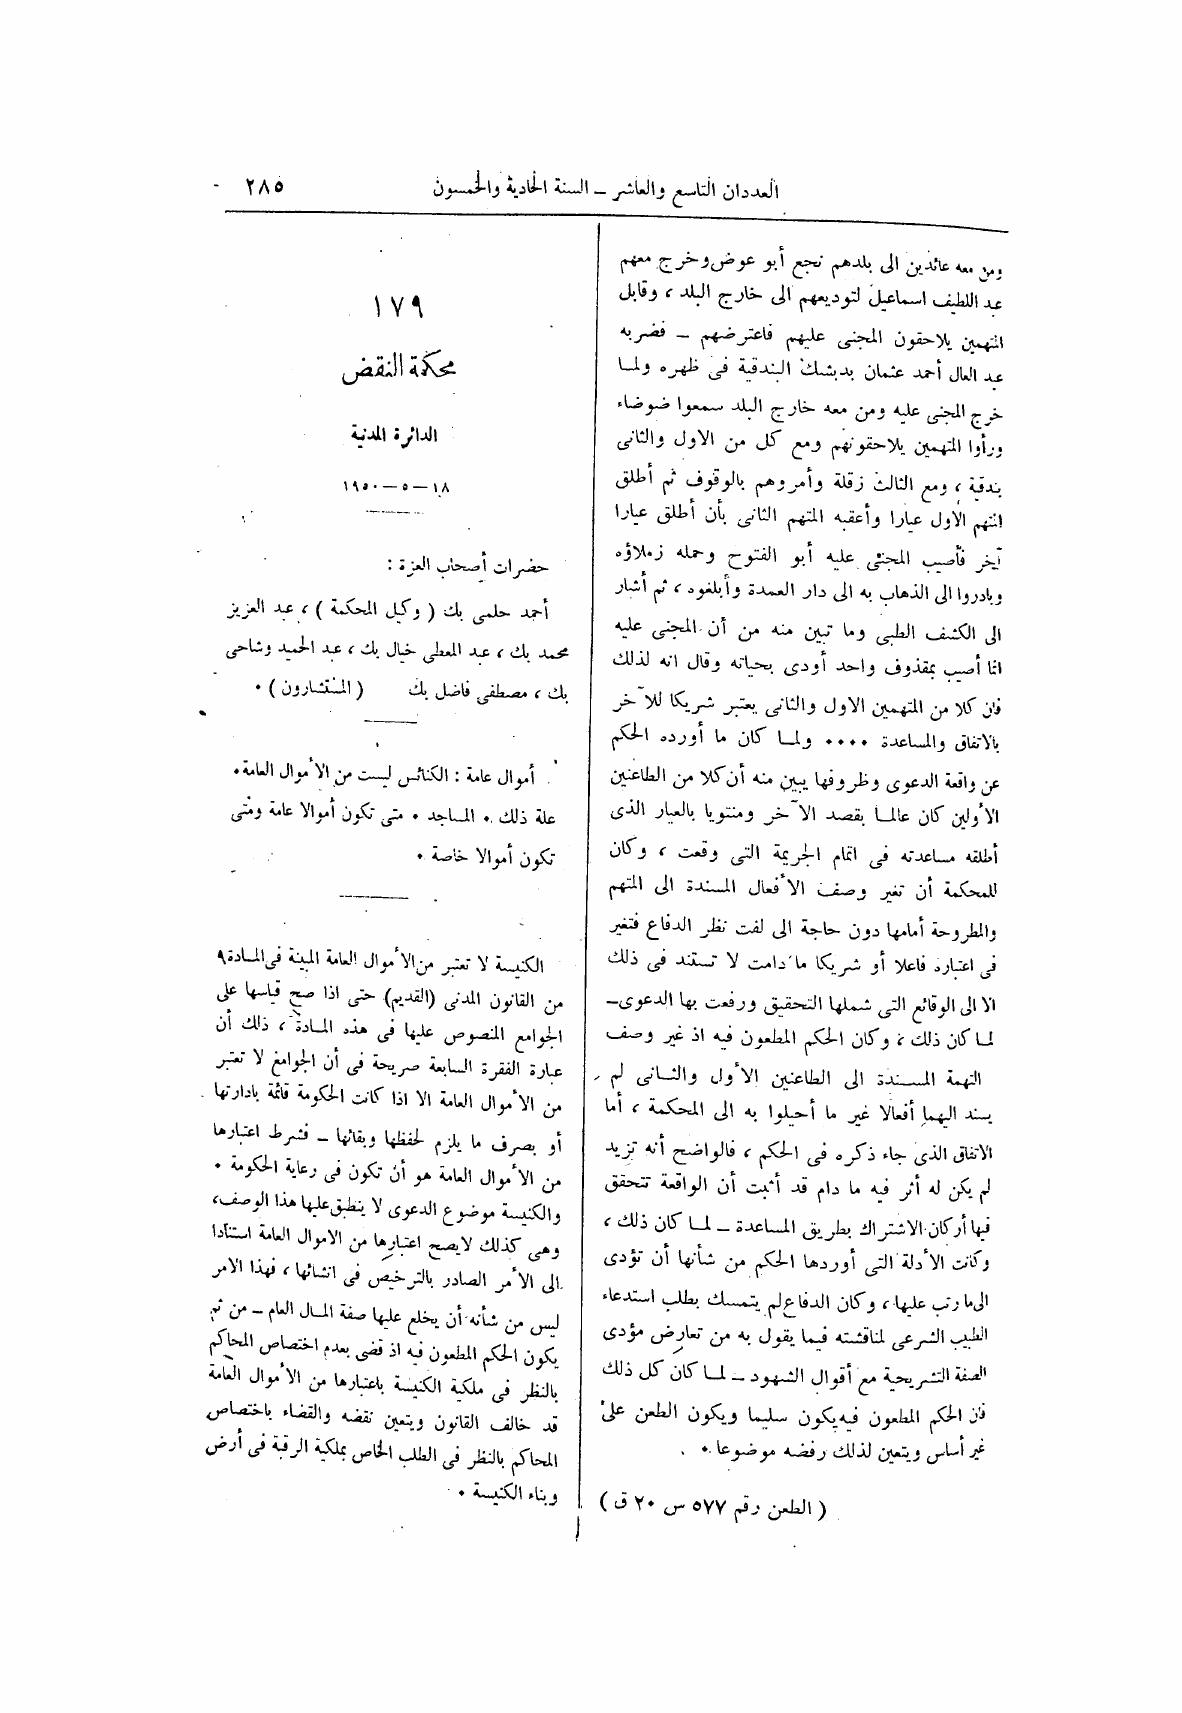 العددان التاسع والعاشر – السنة الحادية والخمسون
٢٨٥
ومن معه عائدين الى بلدهم نجع أبو عوض وخرج معهم
عبد اللطيف اسماعيل لتوديعهم الى خارج البلد ، وقابل
المتهمين يلاحقون المجنى عليهم فاعترضهم – فضربه
عبد العال أحمد عثمان بدبشك البندقية فى ظهره ولما
خرج المجنى عليه ومن معه خارج البلد سمعوا ضوضاء
ورأوا المتهمين يلاحقونهم ومع كل من الاول والثانى
بندقية ، ومع الثالث زقلة وأمروهم بالوقوف ثم أطلق
المتهم الأول عيارا وأعقبه المتهم الثانى بأن أطلق عيارا
آخر فأصيب المجنى عليه أبو الفتوح وحمله زملاؤه
وبادروا الى الذهاب به الى دار العمدة وأبلغوه ، ثم أشار
الى الكشف الطبى وما تبين منه من أن المجنى عليه
انما أصيب بمقذوف واحد أودى بحياته وقال انه لذلك
فان كلا من المتهمين الاول والثانى يعتبر شريكا للآخر
بالاتفاق والمساعدة ٠٠٠٠ ولما كان ما أورده الحكم
عن واقعة الدعوى وظروفها يبين منه أن كلا من الطاعنين
الأولين كان عالما بقصد الآخر ومنتويا بالعيار الذى
أطلقه مساعدته فى اتمام الجريمة التى وقعت ، وكان
للمحكمة أن تغير وصف الأفعال المسندة الى المتهم
والمطروحة أمامها دون حاجة الى لفت نظر الدفاع فتغير
فى اعتباره فاعلا أو شريكا ما دامت لا تستند فى ذلك
الا الى الوقائع التى شملها التحقيق ورفعت بها الدعوى–
لما كان ذلك ، وكان الحكم المطعون فيه اذ غير وصف
التهمة المسندة الى الطاعنين الأول والثانى لم
يسند اليهما أفعالا غير ما أحيلوا به الى المحكمة ، أما
الاتفاق الذى جاء ذكره فى الحكم ، فالواضح أنه تزيد
لم يكن له أثر فيه ما دام قد أثبت أن الواقعة تتحقق
فيها أركان الاشتراك بطريق المساعدة – لما كان ذلك ،
وكانت الأدلة التى أوردها الحكم من شأنها أن تؤدى
الى ما رتب عليها ، وكان الدفاع لم يتمسك بطلب استدعاء
الطبيب الشرعى لمناقشته فيما يقول به من تعارض مؤدى
الصفة التشريحية مع أقوال الشهود – لما كان كل ذلك
فان الحكم المطعون فيه يكون سليما ويكون الطعن على
غير أساس ويتعين لذلك رفضه موضوعا ٠
( الطعن رقم ٥٧٧ س ٢٠ ق )
١٧٩
محكمة النقض
الدائرة المدنية
١٨–٥–١٩٥٠
حضرات أصحاب العزة :
أحمد حلمى بك ( وكيل المحكمة ) ، عبد العزيز
محمد بك ، عبد المعطى خيال بك ، عبد الحميد وشاحى
بك ، مصطفى فاضل بك ( المستشارون ) ٠
أموال عامة : الكنائس ليست من الأموال العامة ٠
علة ذلك ٠ المساجد ٠ متى تكون أموالا عامة ومتى
تكون أموالا خاصة ٠
الكنيسة لا تعتبر من الأموال العامة المبينة فى المادة ٩
من القانون المدنى (القديم) حتى اذا صح قياسها على
الجوامع المنصوص عليها فى هذه المادة ، ذلك أن
عبارة الفقرة السابعة صريحة فى أن الجوامع لا تعتبر
من الأموال العامة الا اذا كانت الحكومة قائمة بادارتها
أو بصرف ما يلزم لحفظها وبقائها – فشرط اعتبارها
من الأموال العامة هو أن تكون فى رعاية الحكومة ٠
والكنيسة موضوع الدعوى لا ينطبق عليها هذا الوصف ،
وهى كذلك لا يصح اعتبارها من الاموال العامة استنادا
الى الأمر الصادر بالترخيص فى انشائها ، فهذا الامر
ليس من شأنه أن يخلع عليها صفة المال العام – من ثم
يكون الحكم المطعون فيه اذ قضى بعدم اختصاص المحاكم
بالنظر فى ملكية الكنيسة باعتبارها من الأموال العامة
قد خالف القانون ويتعين نقضه والقضاء باختصاص
المحاكم بالنظر فى الطلب الخاص بملكية الرقبة فى أرض
وبناء الكنيسة ٠